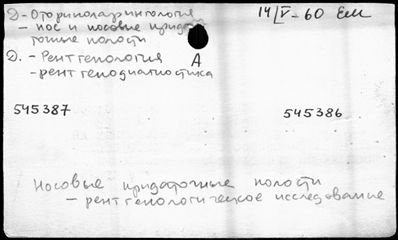 Д-Оториноларингология 14/V-60 Ем
- нос и носовые придаточные полости
Д. - Рентгенология А
- рентгенодиагностика
545387 545386
Носовые придаточные полости
- рентгенологическое исследование